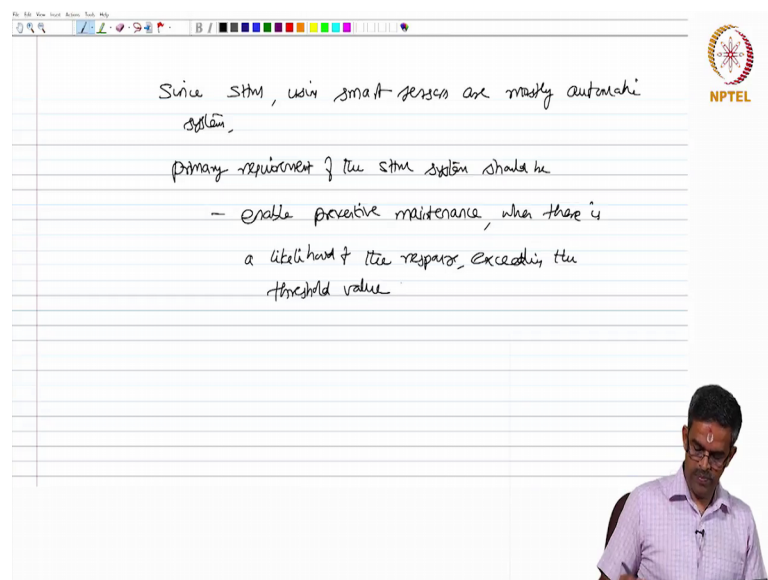 File Edit View Insert Actions Tools Help
B I
NPTEL
Since SHM, using smart sensors are mostly automatic
system,
primary requirement of the SHM system should be
- enable preventive maintenance, when there is
a likelihood of the response, exceeding the
threshold value